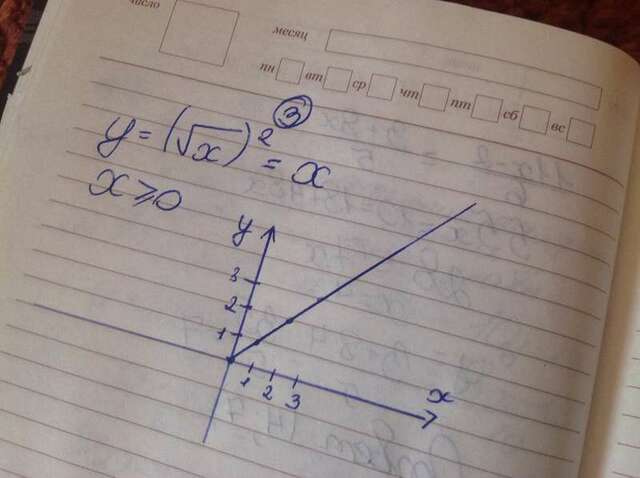 число
месяц
пн вт ср чт пт сб вс
3
y = (√x)² = x
x ⩾ 0
y
3
2
1
1 2 3
x